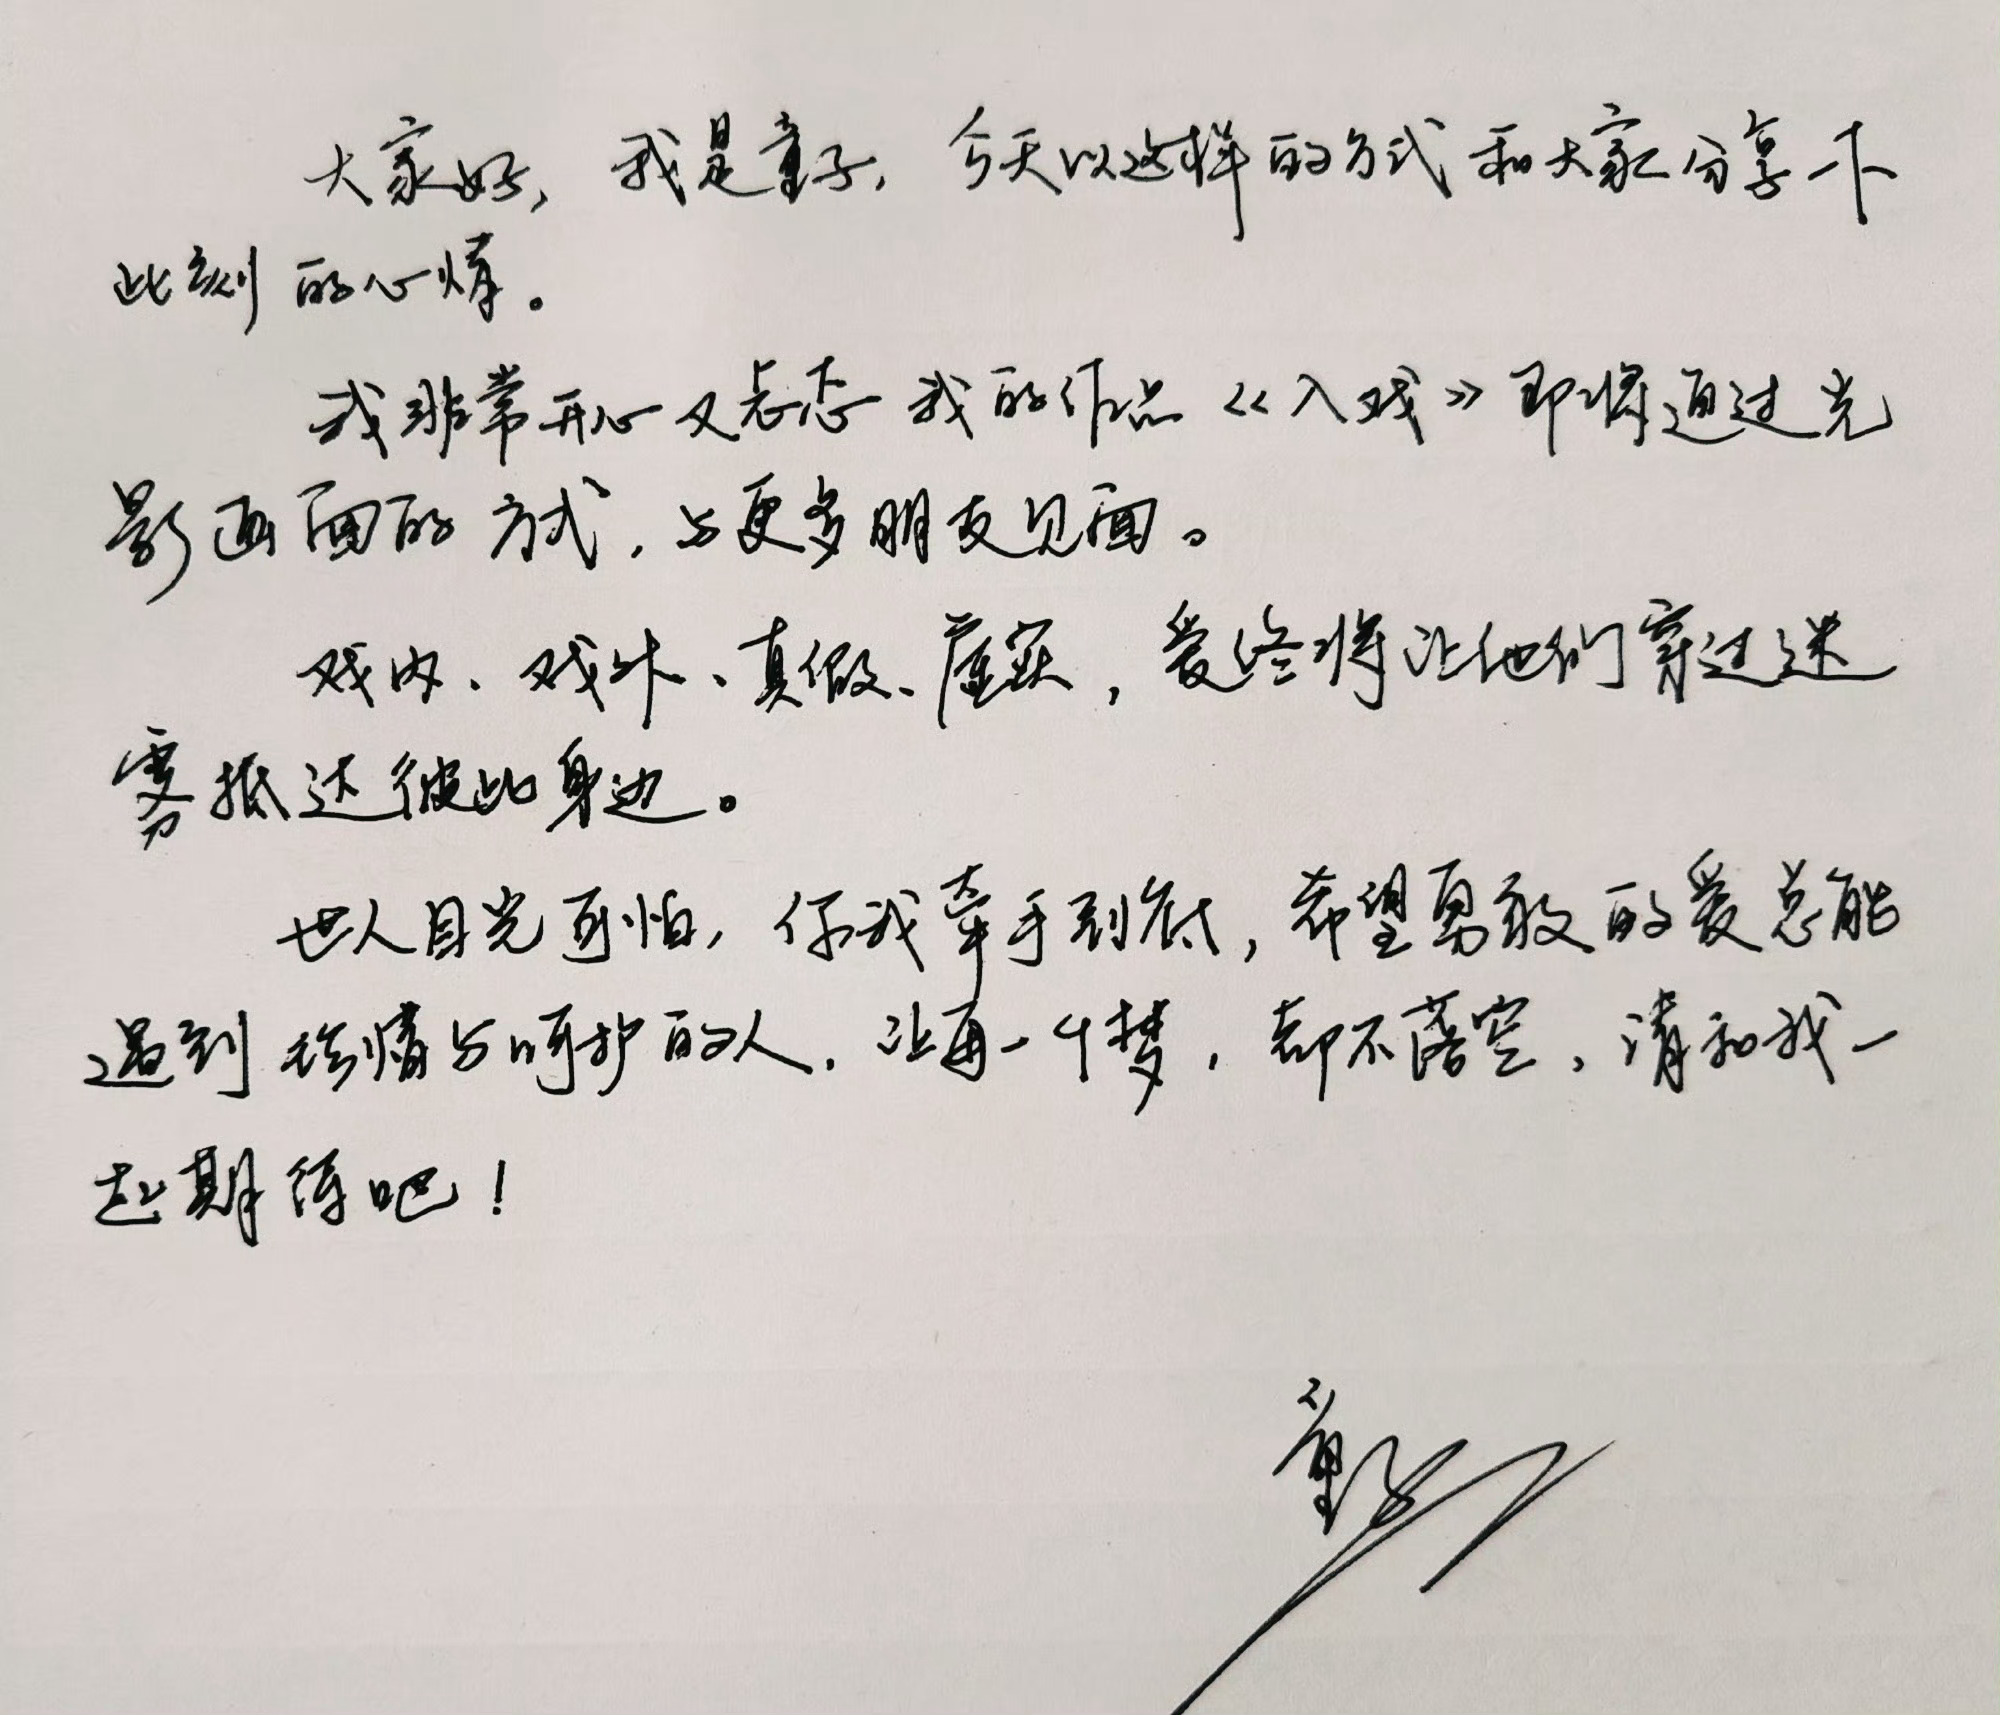 大家好，我是童子，今天以这样的方式和大家分享一下
此刻的心情。
我非常开心又忐忑 我的作品《入戏》即将通过光
影画面的方式，与更多朋友见面。
戏内、戏外、真假、虚实，爱终将让他们穿过迷
雾抵达彼此身边。
世人目光可怕，你我牵手到底，希望勇敢的爱总能
遇到 珍惜与呵护的人，让每一个梦，都不落空，请和我一
起期待吧！
童子